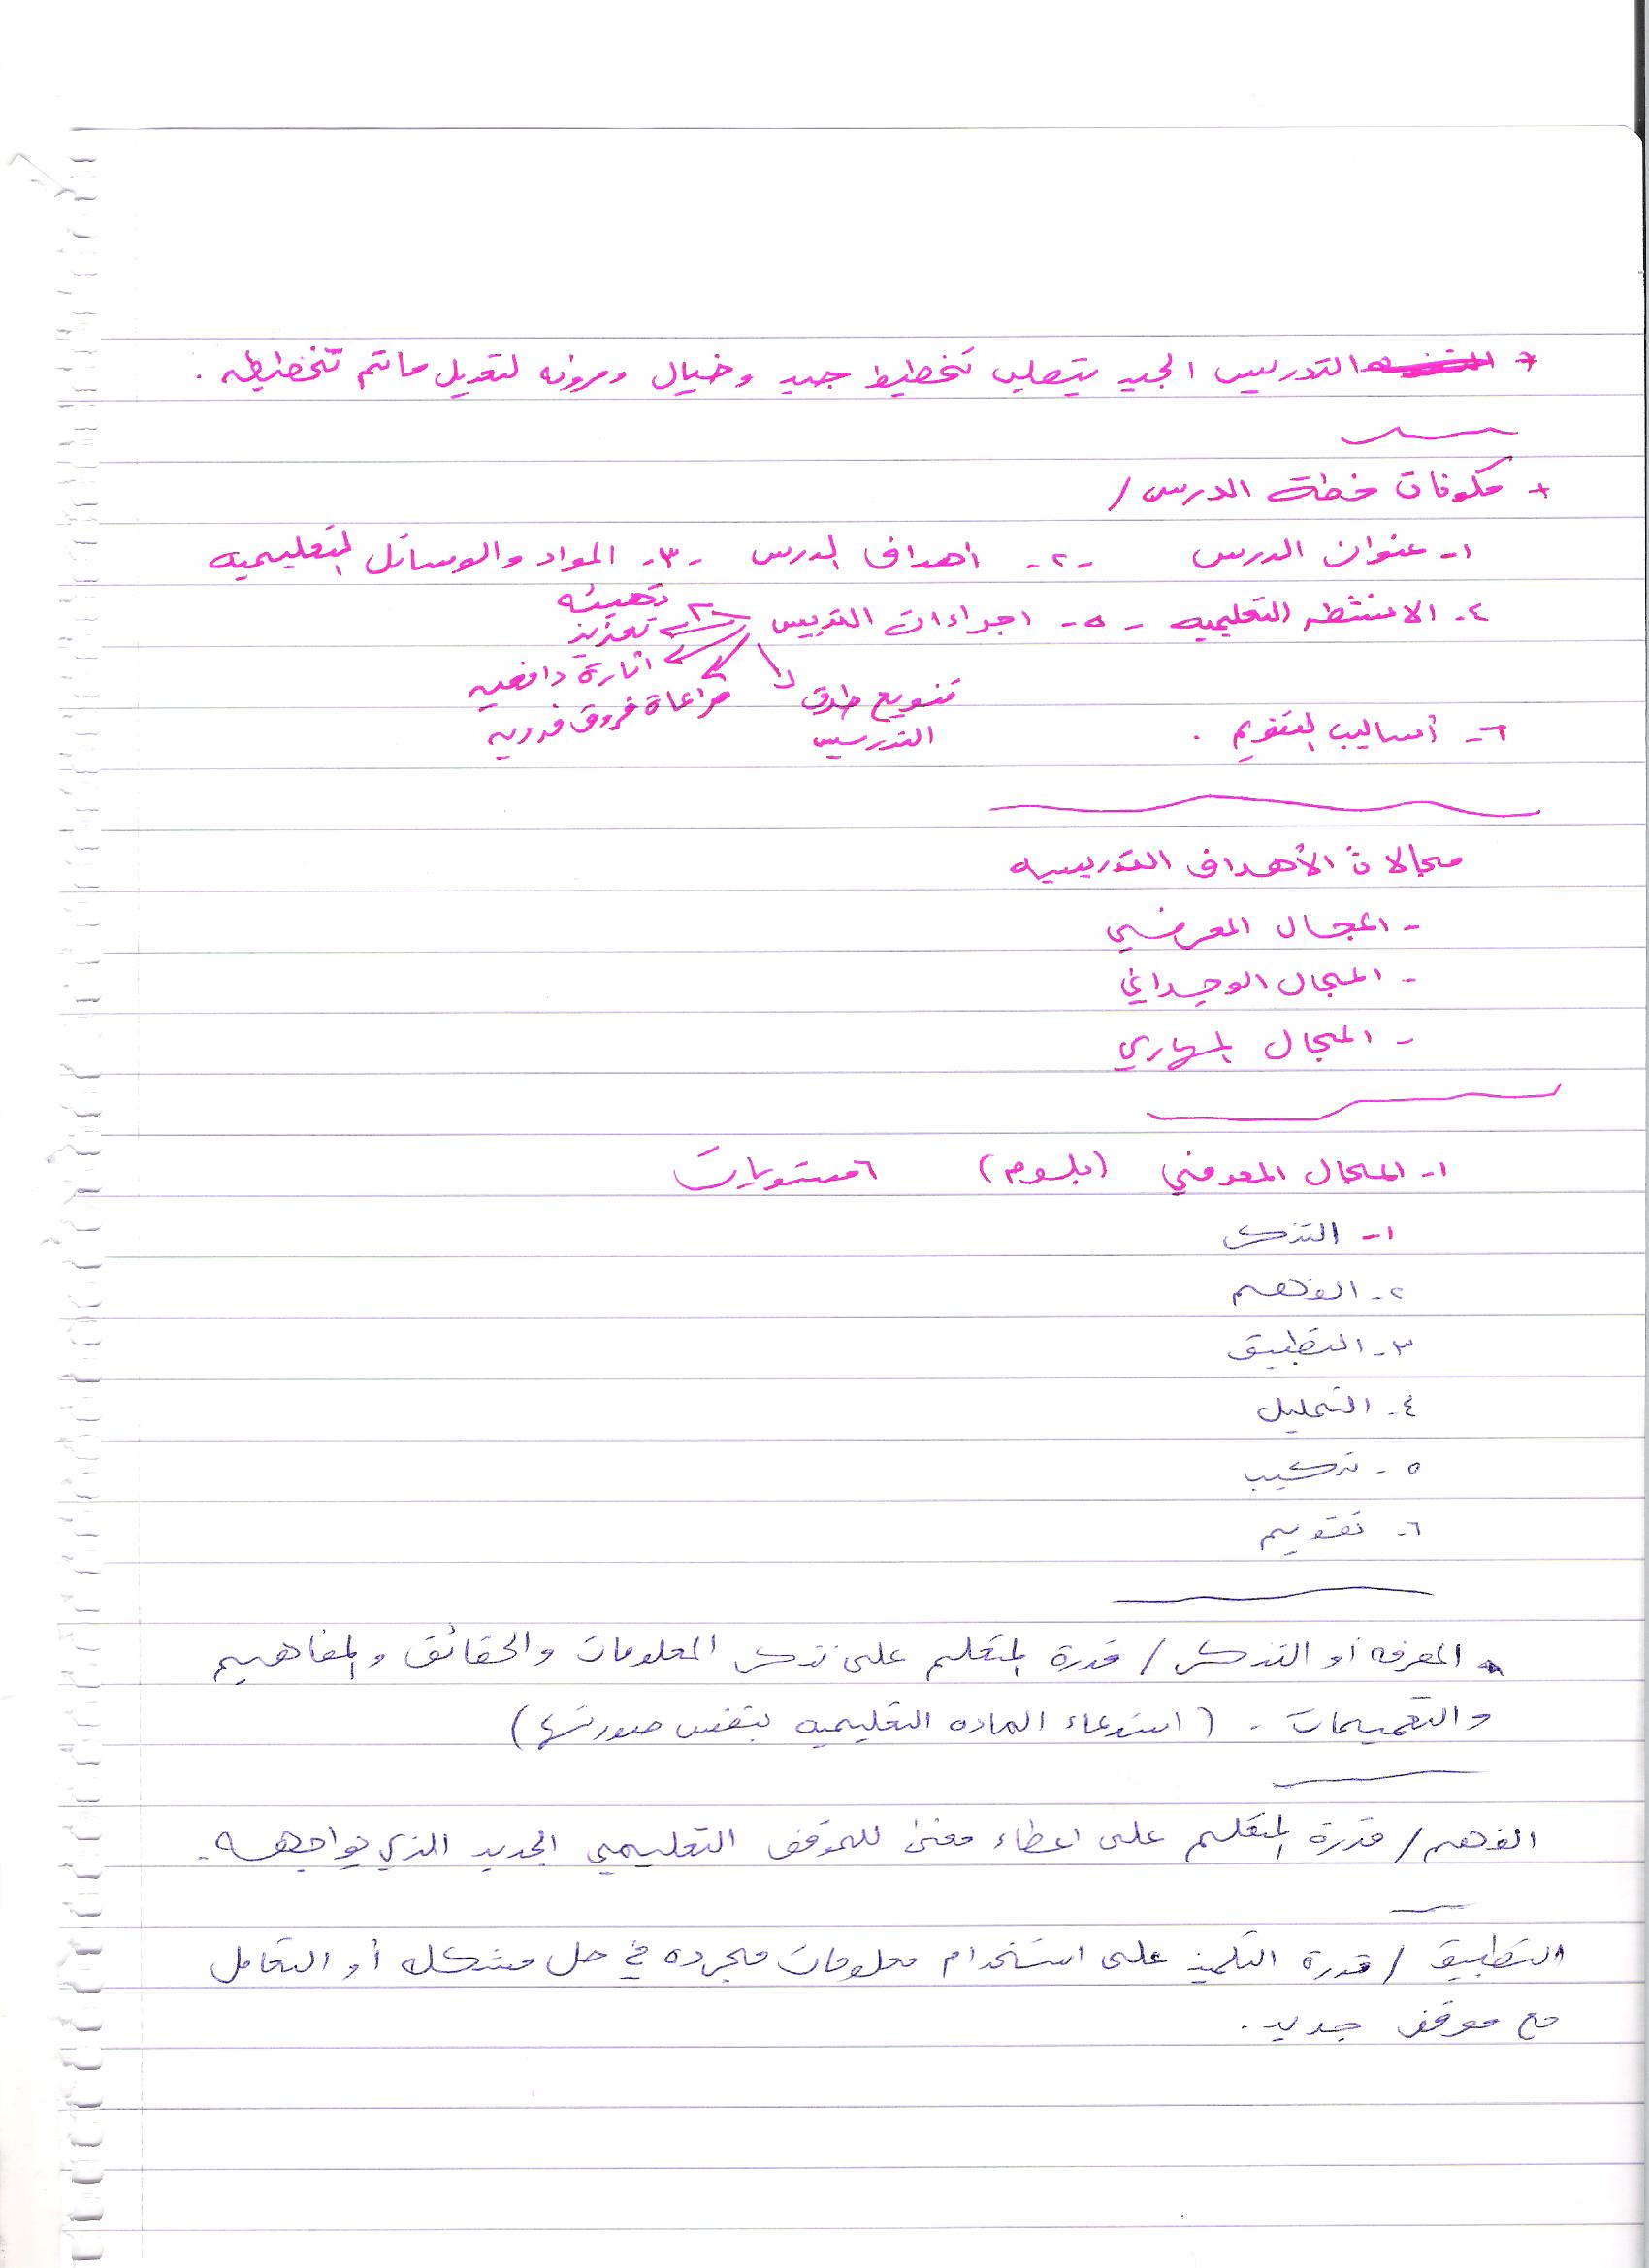 * التدريس الجيد يتطلب تخطيط جيد وخيال ومرونه لتعديل ماتم تخطيطه.
* مكونات خطة الدرس /
١- عنوان الدرس -٢- اهداف الدرس -٣- المواد والوسائل التعليميه
٤- الانشطه التعليميه -٥- اجراءات التدريس
تهيئه
تعزيز
اثارة دافعيه
مراعاة فروق فرديه
تنويع طرق
التدريس
٦- أساليب التقويم.
مجالات الأهداف التدريسيه
- المجال المعرفي
- المجال الوجداني
- المجال المهاري
١- المجال المعرفي (بلوم) ٦ مستويات
١- التذكر
٢- الفهم
٣- التطبيق
٤- التحليل
٥- تركيب
٦- تقويم
المعرفه أو التذكر / قدرة المتعلم على تذكر المعلومات والحقائق والمفاهيم
والتعميمات. (استدعاء الماده التعليميه بنفس صورتها)
الفهم / قدرة المتعلم على اعطاء معنى للموقف التعليمي الجديد الذي يواجهه.
التطبيق / قدرة التلميذ على استخدام معلومات مجرده في حل مشكله أو التعامل
مع موقف جديد.